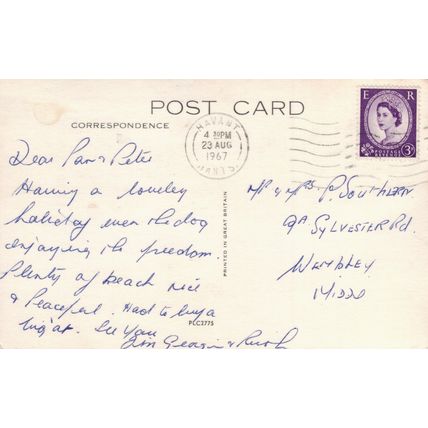 POST CARD
CORRESPONDENCE
HAVANT
4 30PM
23 AUG
1967
HANTS
E R
POSTAGE
3D
Dear Pam & Peter
Having a lovely
holiday even the dog
enjoying the freedom.
Plenty of beach nice
& Peaceful. Had to buy a
See You
PRINTED IN GREAT BRITAIN
PLC2775
Mr & Mrs P. Southern
9A Sylvester Rd.
Wembley
Midd